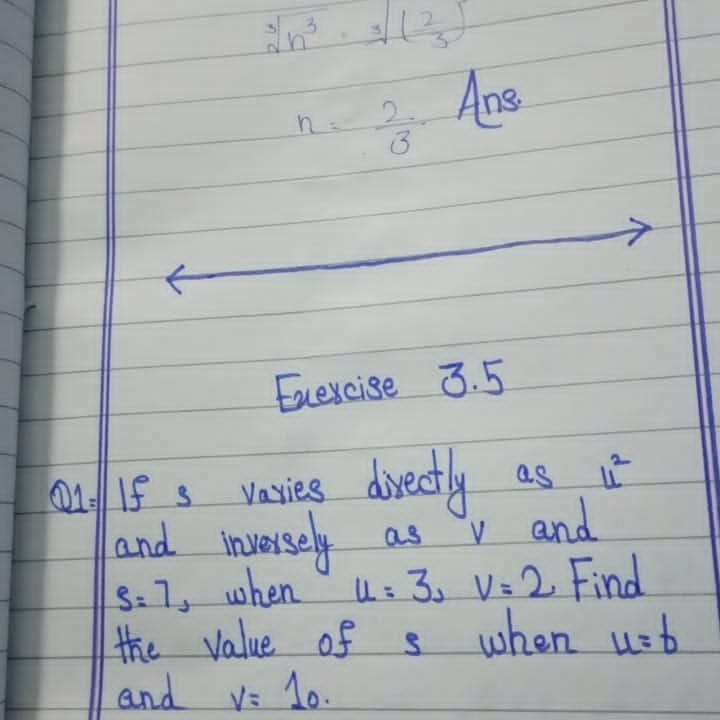 ∛n³ = ∛(2/3)
n = 2/3 Ans.
Exercise 3.5
Q1= If s varies directly as u²
and inversely as v and
s=7, when u=3, v=2. Find
the value of s when u=6
and v= 10.